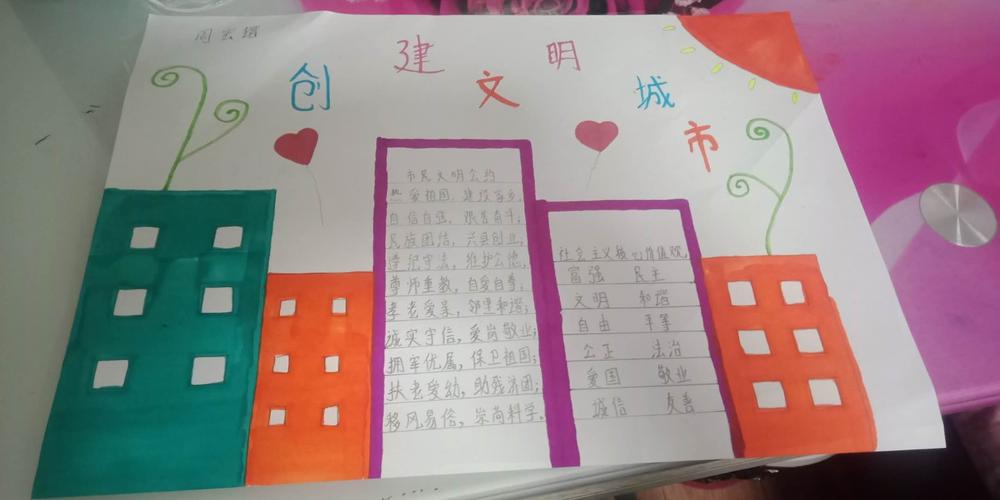 周宏锴
创建文明城市
市民文明公约
热爱祖国，建设家乡；
自信自强，艰苦奋斗；
民族团结，兴县创业；
遵纪守法，维护公德；
尊师重教，自爱自尊；
孝老爱亲，邻里和谐；
诚实守信，爱岗敬业；
拥军优属，保卫祖国；
扶老爱幼，助残济困；
移风易俗，崇尚科学。
社会主义核心价值观
富强 民主
文明 和谐
自由 平等
公正 法治
爱国 敬业
诚信 友善